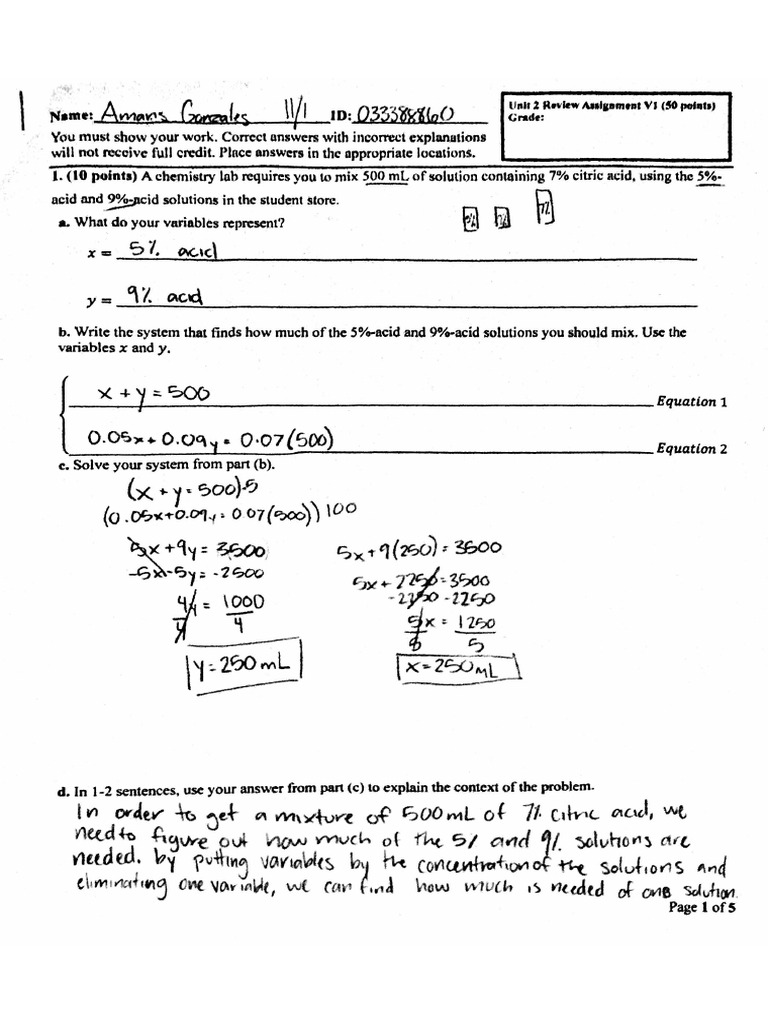 Name: Amaris Gonzales 11/1 ID: 033388860
Unit 2 Review Assignment V1 (50 points)
Grade:
You must show your work. Correct answers with incorrect explanations
will not receive full credit. Place answers in the appropriate locations.
1. (10 points) A chemistry lab requires you to mix 500 mL of solution containing 7% citric acid, using the 5%-
acid and 9%-acid solutions in the student store.
a. What do your variables represent?
x = 5% acid
y = 9% acid
b. Write the system that finds how much of the 5%-acid and 9%-acid solutions you should mix. Use the
variables x and y.
x + y = 500 Equation 1
0.05x + 0.09y = 0.07(500) Equation 2
c. Solve your system from part (b).
(x + y = 500)-5
(0.05x+0.09y = 0.07(500)) 100
5x + 9y = 3500
-5x - 5y = -2500
4y = 1000
4 4
y = 250 mL
5x + 9(250) = 3500
5x + 2250 = 3500
-2250 -2250
5x = 1250
5 5
x = 250 mL
d. In 1-2 sentences, use your answer from part (c) to explain the context of the problem.
In order to get a mixture of 500mL of 7% citric acid, we
need to figure out how much of the 5% and 9% solutions are
needed. by putting variables by the concentration of the solutions and
eliminating one variable, we can find how much is needed of one solution.
Page 1 of 5